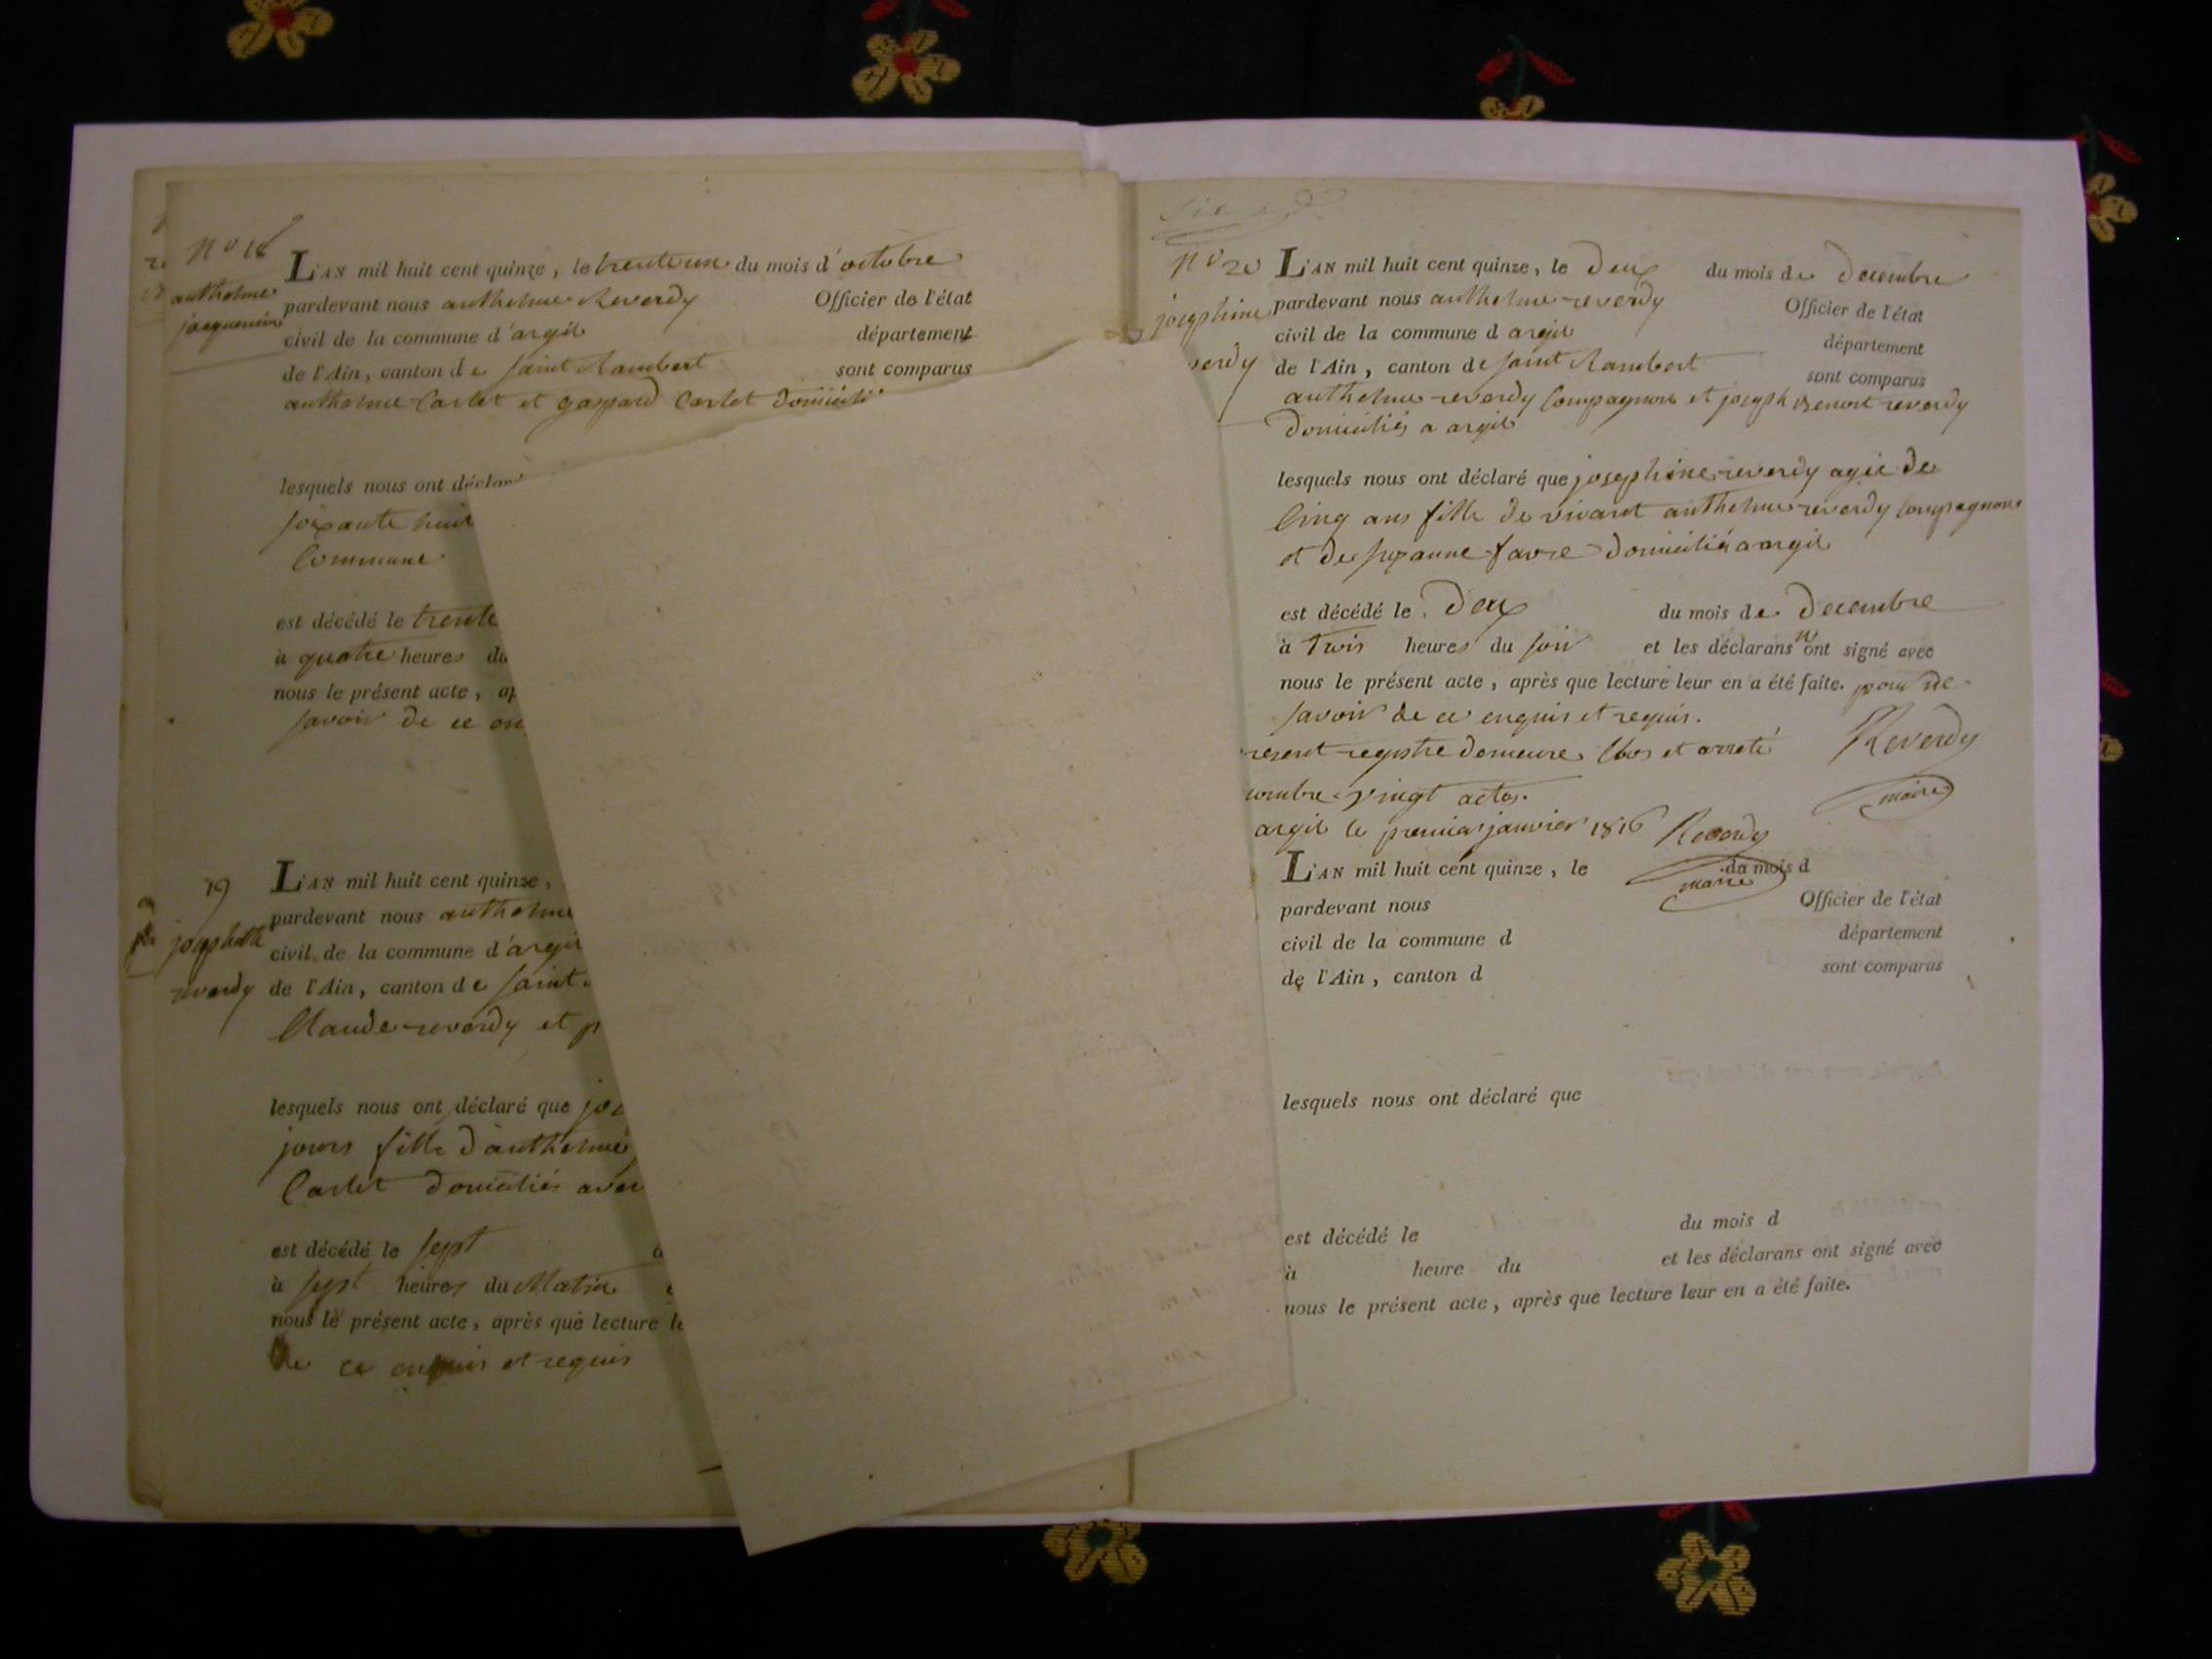 N° 18
anthelme
jacquemin
L'AN mil huit cent quinze, le trente un du mois d'octobre
pardevant nous anthelme Reverdy Officier de l'état
civil de la commune d'argil département
de l'Ain, canton de saint Rambert sont comparus
anthelme Carlet et gaspard Carlet domicili
lesquels nous ont déclaré
soixante huit
Commune
est décédé le trente
à quatre heures du
nous le présent acte, ap
savoir de ce en
19
josephthe
reverdy
L'AN mil huit cent quinze,
pardevant nous anthelme
civil de la commune d'argil
de l'Ain, canton de saint
Claude reverdy et p
lesquels nous ont déclaré que jos
jours fille d'anthelme
Carlet domiciliés avec
est décédé le sept
à sept heures du Matin
nous le présent acte, après que lecture le
de ce enquis et requis
N° 20
josephine
verdy
L'AN mil huit cent quinze, le deux du mois de decembre
pardevant nous anthelme reverdy Officier de l'état
civil de la commune d argil département
de l'Ain, canton de saint Rambert sont comparus
anthelme reverdy Compagnon et joseph Benoit reverdy
domiciliés a argil
lesquels nous ont déclaré que josephine reverdy agée de
Cinq ans fille de vivant anthelme reverdy Compagnon
et de suzanne favre domiciliés a argil
est décédé le deux du mois de decembre
à trois heures du soir et les déclarans n'ont signé avec
nous le présent acte, après que lecture leur en a été faite. pour ne
savoir de ce enquis et requis.
resent registre demeure Clos et arreté
ombre vingt actes.
Reverdy
maire
argil le premier janvier 1816 Reverdy
maire
L'AN mil huit cent quinze, le du mois d
pardevant nous Officier de l'état
civil de la commune d département
de l'Ain, canton d sont comparus
lesquels nous ont déclaré que
est décédé le du mois d
à heure du et les déclarans ont signé avec
nous le présent acte, après que lecture leur en a été faite.